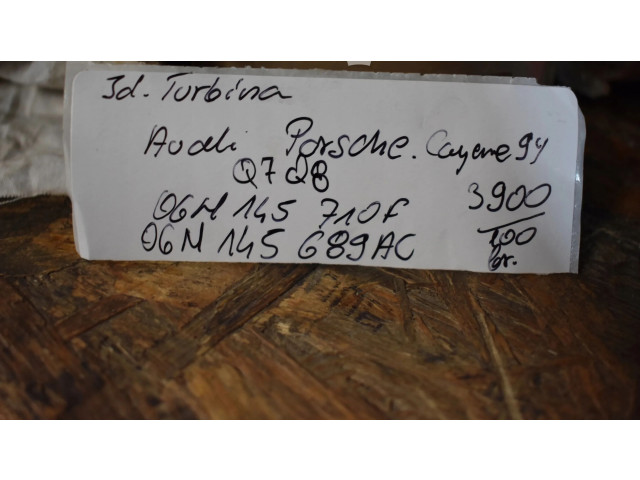 3d. Turbina
Audi Porsche. Cayene 9Y
Q7 Q8
06M 145 710F 3900
06M 145 689AC 100
gr.